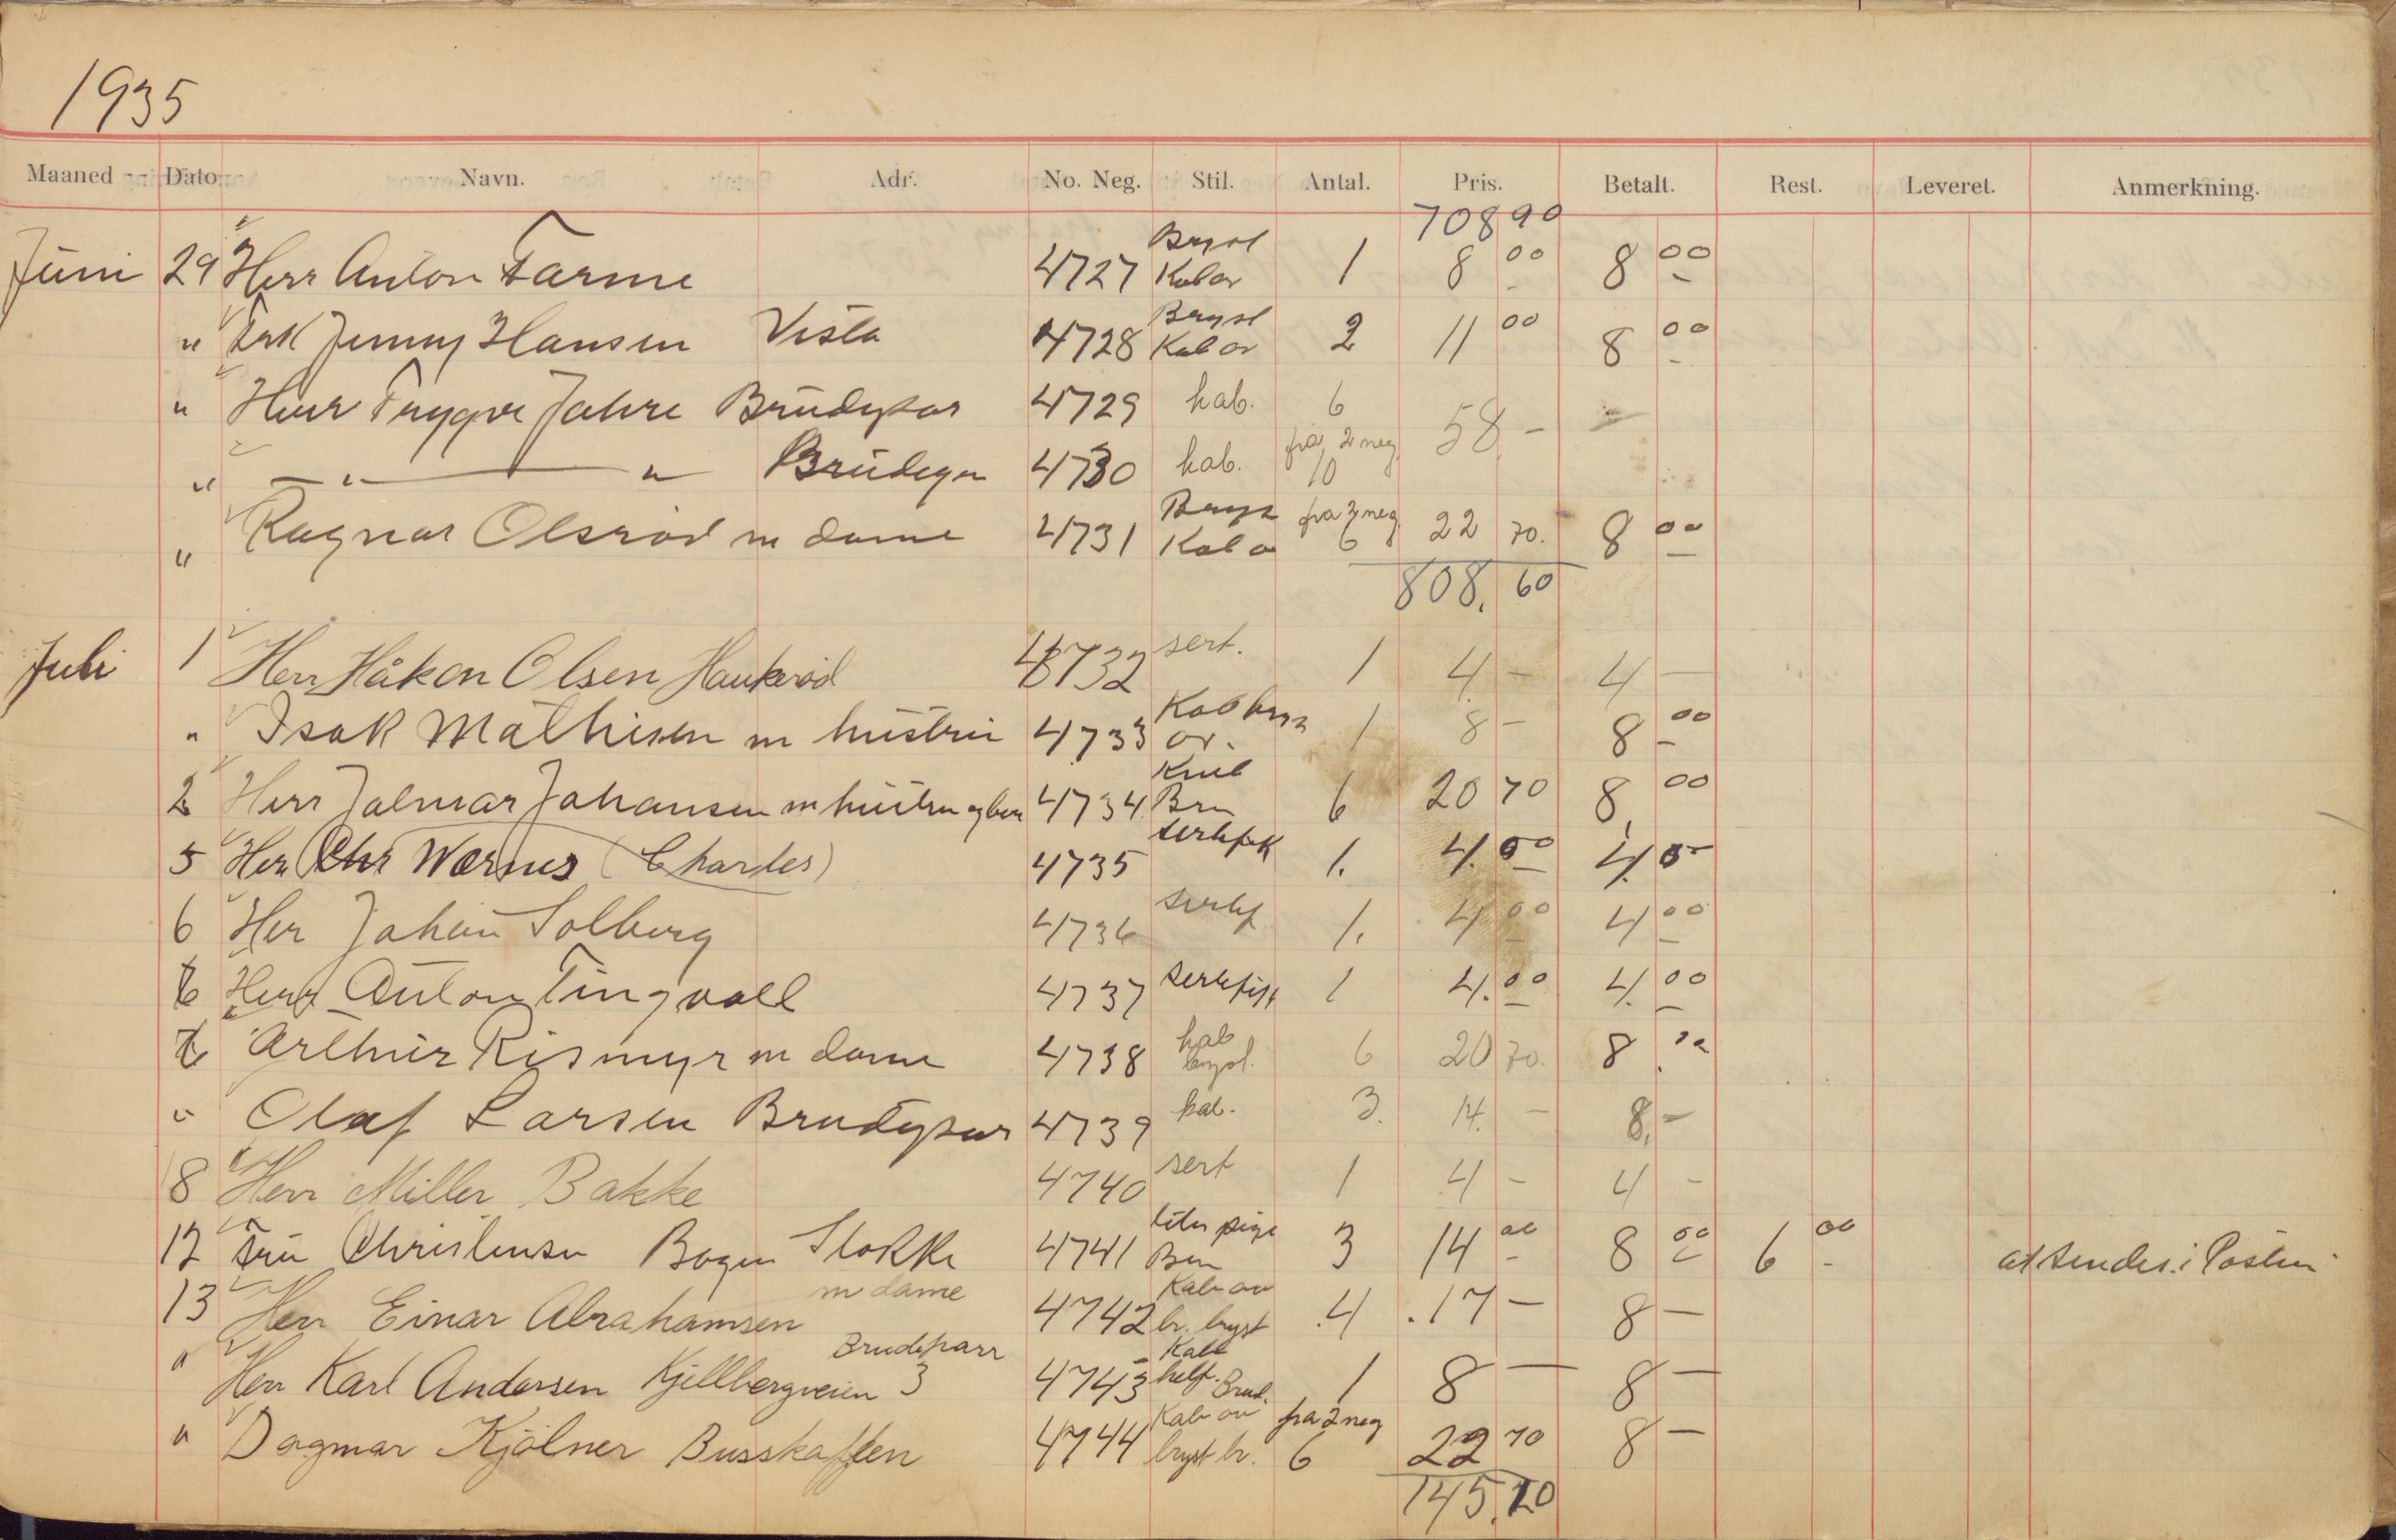 1935
Maaned Dato Navn. Adr. No. Neg. Stil. Antal. Pris. Betalt. Rest. Leveret. Anmerkning.
708 90
Juni 29 Herr Anton Farme 4727 Bryst Kab ov 1 8 00 8 00
" Frk Jenny Hansen Vesta 4728 Bryst Kab ov 2 11 00 8 00
" Herr Trygve Jahre Brudepar 4729 kab. 6 58 -
" " " 4730 kab. fra 2 neg. 10
" Ragnar Olsrød m dame 4731 Kab fra 3 neg. 6 22 70. 8 00
808. 60
Juli 1 Herr Håkon Olsen Haukerød 4732 sert. 1 4. - 4 -
" Isak Mathisen m hustru 4733 Kab ov. 1 8 - 8 00
2 Herr Jalmar Johansen m hustru 4734 6 20 70 8 00
5 Her Chr Wærnes (Charles) 4735 sertefik 1. 4. 00 4. 00
6 Her Johan Solberg 4736 sertef 1. 4 00 4 00
6 Herr Anton Tingvall 4737 sertefik 1 4. 00 4. 00
Arthur Rismyr m dame 4738 kab bryst. 6 20 70. 8.
" Olaf Larsen Brudepar 4739 kab. 3. 14. - 8. -
8 Herr Miller Bakke 4740 sert 1 4 - 4 -
12 Fru Christensen Bogen Stokke 4741 liten pige 3 14 00 8 00 6 00 at sendes i Posten
m dame
13 Herr Einar Abrahamsen 4742 Kab ov br. bryst 4 17 - 8 -
Brudeparr
" Herr Karl Andersen Kjellbergveien 3 4743 Kab helf. Brud. 1 8 - 8 -
" Dagmar Kjølner Busskaffeen 4744 Kab ov bryst br. fra 2 neg 6 22 70 8 -
145.20